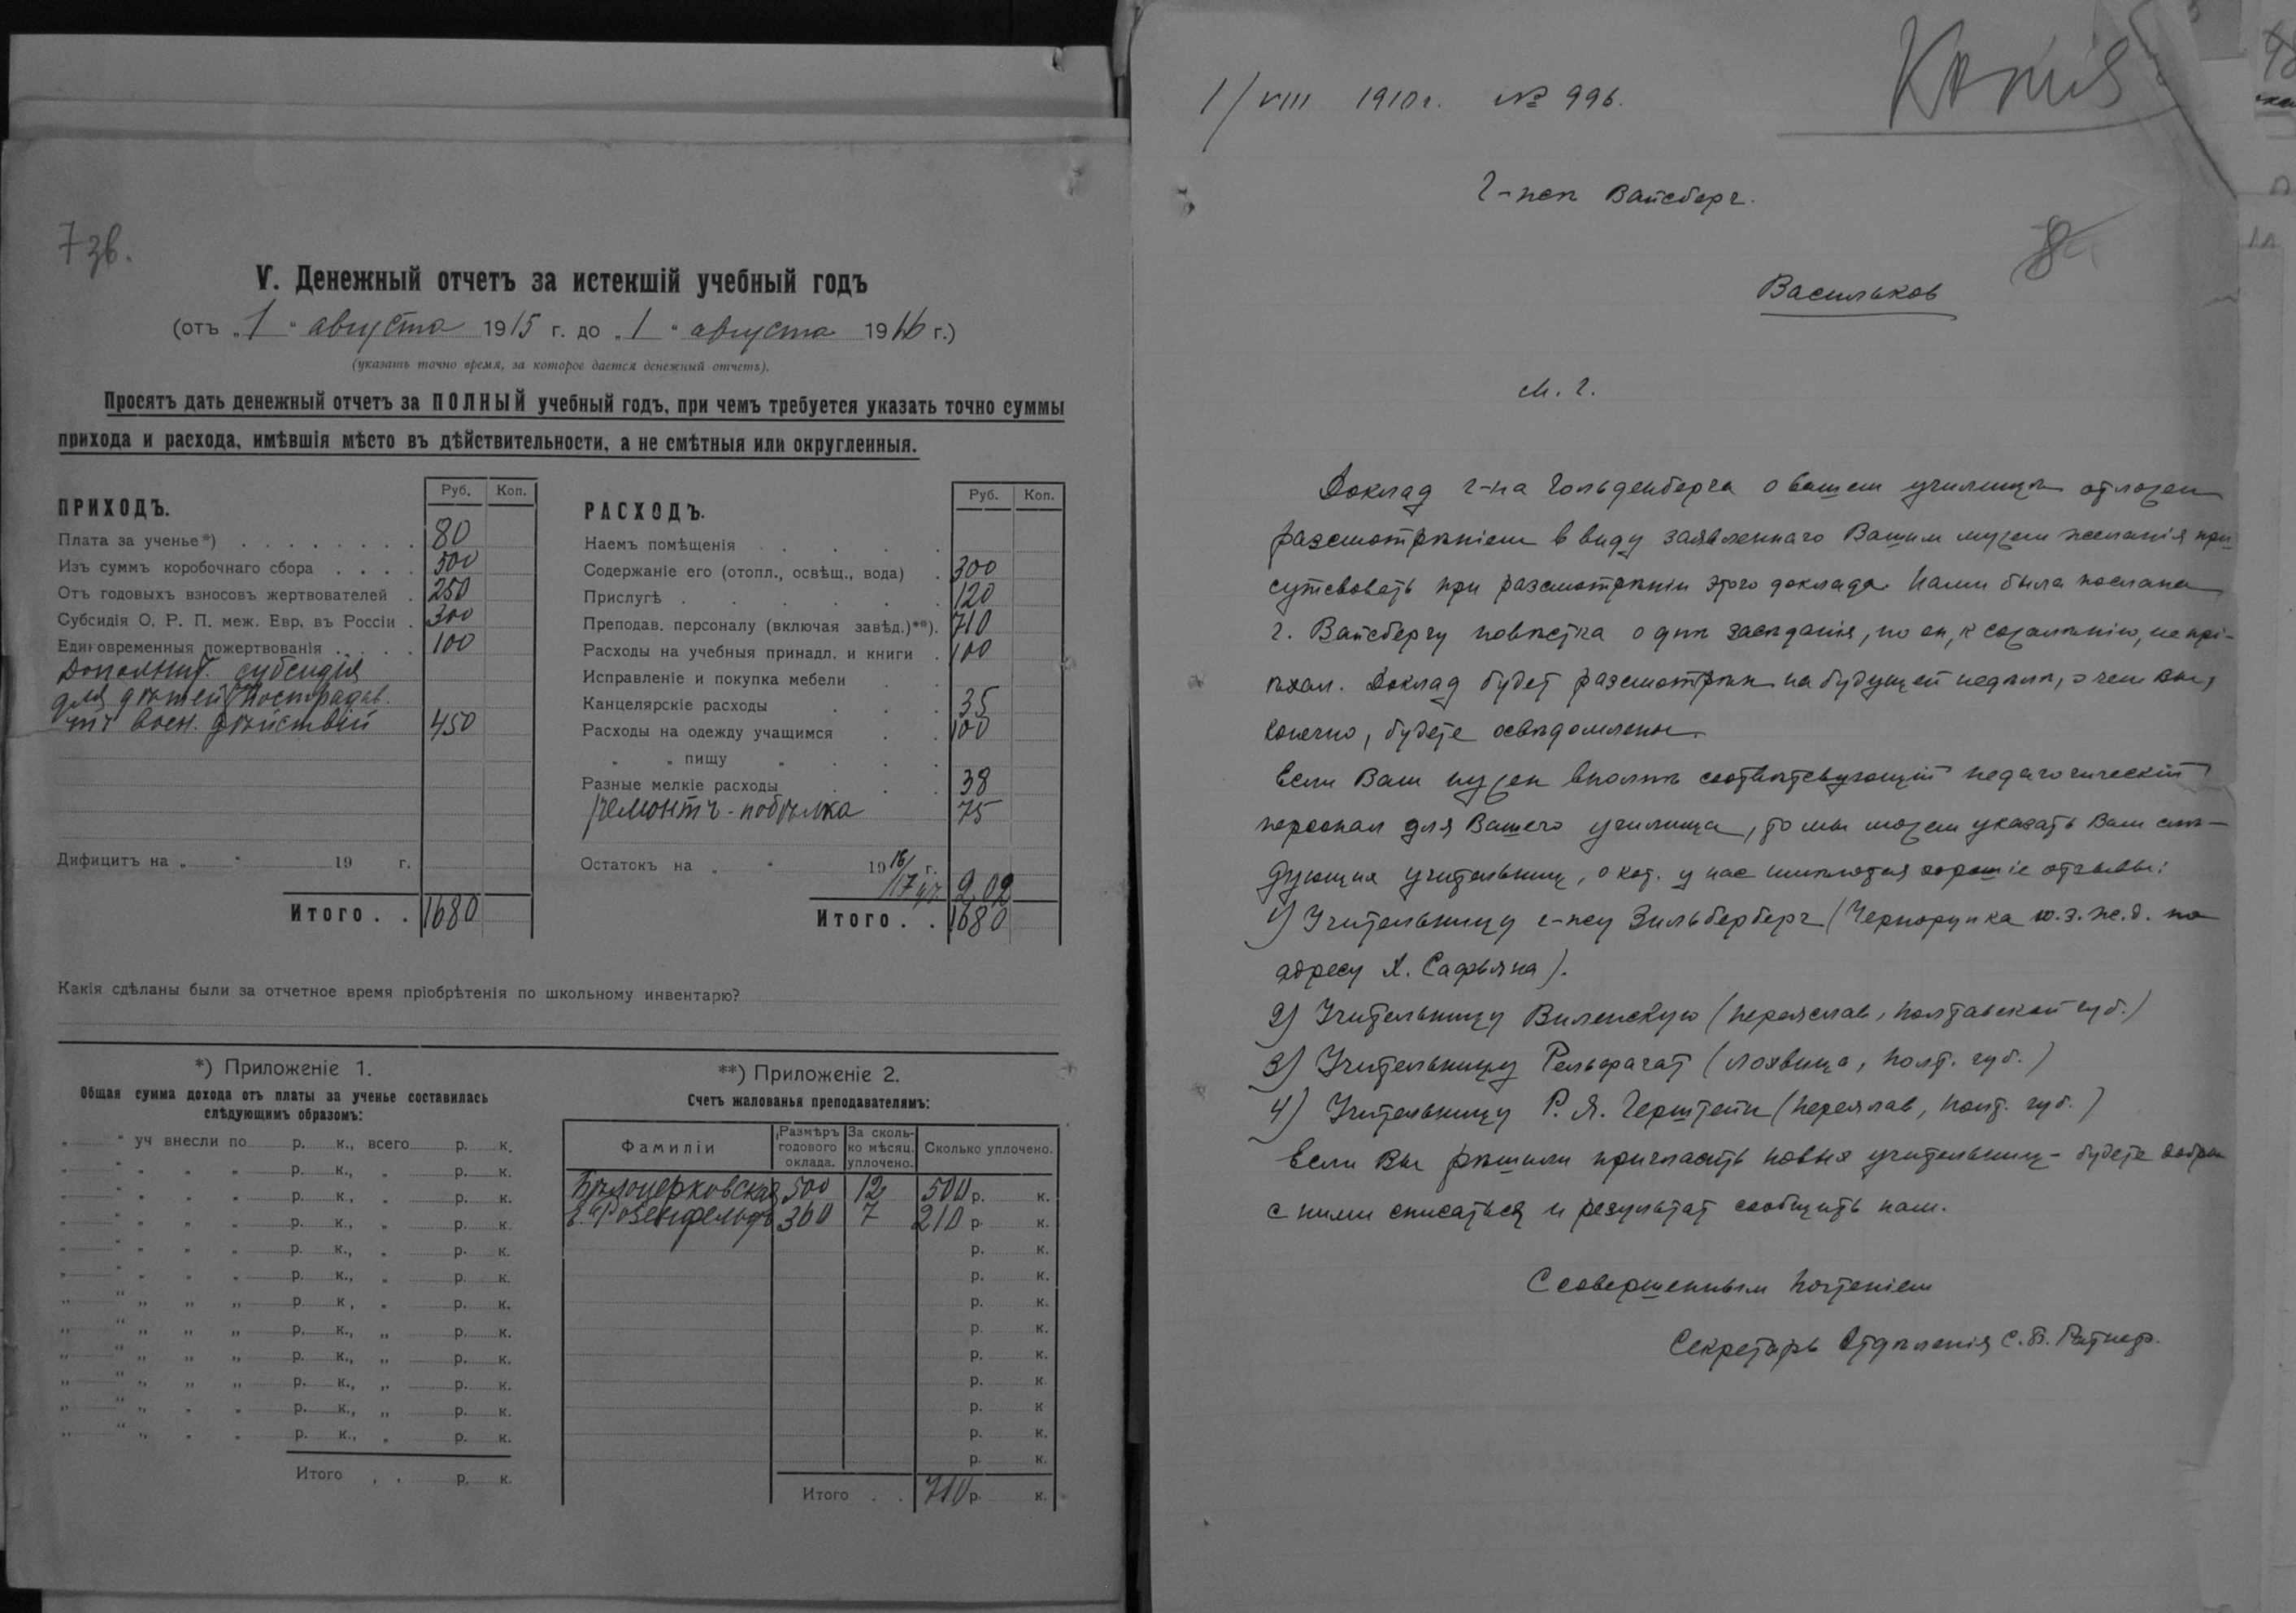 7 зв.
V. Денежный отчетъ за истекшій учебный годъ
(отъ „1“ августа 1915 г. до „1“ августа 1916 г.)
(указать точно время, за которое дается денежный отчетъ).
Просятъ дать денежный отчетъ за ПОЛНЫЙ учебный годъ, при чемъ требуется указать точно суммы
прихода и расхода, имѣвшія мѣсто въ дѣйствительности, а не смѣтныя или округленныя.
ПРИХОДЪ. Руб. Коп.
Плата за ученье*) 80
Изъ суммъ коробочнаго сбора 500
Отъ годовыхъ взносовъ жертвователей 250
Субсидія О. Р. П. меж. Евр. въ Россіи 300
Единовременныя пожертвованія 100
Дополнит. субсидія
для дѣтей пострадав.
отъ воен. дѣйствій 450
Дифицитъ на „ “ 19 г.
Итого . . 1680
РАСХОДЪ. Руб. Коп.
Наемъ помѣщенія
Содержаніе его (отопл., освѣщ., вода) 300
Прислугѣ 120
Преподав. персоналу (включая завѣд.)**). 710
Расходы на учебныя принадл. и книги 100
Исправленіе и покупка мебели
Канцелярскіе расходы 35
Расходы на одежду учащимся 100
„ „ пищу „
Разные мелкіе расходы 38
ремонтъ - побѣлка 75
Остатокъ на „ “ 1916/17 г. 202
Итого . . 1680
Какія сдѣланы были за отчетное время пріобрѣтенія по школьному инвентарю?
*) Приложеніе 1.
Общая сумма дохода отъ платы за ученье составилась
слѣдующимъ образомъ:
„ “ уч внесли по р. к., всего р. к.
„ “ „ „ „ р. к., „ р. к.
„ “ „ „ „ р. к., „ р. к.
„ “ „ „ „ р. к., „ р. к.
„ “ „ „ „ р. к., „ р. к.
„ “ „ „ „ р. к., „ р. к.
„ “ „ „ „ р. к., „ р. к.
„ “ „ „ „ р. к., „ р. к.
„ “ „ „ „ р. к., „ р. к.
„ “ „ „ „ р. к., „ р. к.
„ “ „ „ „ р. к., „ р. к.
„ “ „ „ „ р. к., „ р. к.
Итого . . р. к.
**) Приложеніе 2.
Счетъ жалованья преподавателямъ:
Фамиліи Размѣръ годового оклада. За сколько мѣсяц. уплочено. Сколько уплочено.
Бѣлоцерковская 500 12 500 р. к.
Розенфельдъ 360 7 210 р. к.
р. к.
р. к.
р. к.
р. к.
р. к.
р. к.
р. к.
р. к.
р. к.
Итого . . 710 р. к.
1/VIII 1910 г. № 996.
Копія
Г-жѣ Вайсберг.
Васильков
М. Г.
Доклад г-на Гольденберга о вашем училищѣ отложен
разсмотрѣніем в виду заявленнаго Вашим мужем желанія при-
сутсвовать при разсмотрѣніи этого доклада. Нами была послана
г. Вайсбергу повѣстка о днѣ засѣданія, но он, к сожалѣнію, не прі-
ѣхал. Доклад будет разсмотрѣн на будущей недѣлѣ, о чем Вы,
конечно, будете освѣдомлены.
Если Вам нужен вполнѣ соотвѣтсвующій педагогическій
персонал для Вашего училища, то мы можем указать Вам слѣ-
дующих учительниц, о кот. у нас имѣются хорошіе отзывы:
1) Учительницу г-жу Зильберберг (Чернорудка ю.з.ж.д. по
адресу Х. Сафьяна).
2) Учительницу Виленскую (Переяслав, Полтавской губ.)
3) Учительницу Рельфагат (Лохвица, Полт. губ.)
4) Учительницу Р. Я. Герштейн (Переяслав, Полт. губ.)
Если Вы рѣшили пригласить новых учительниц - будете добры
с ними списаться и результат сообщить нам.
С совершенным почтеніем
Секретарь Отдѣленія С. В. Ратнер.